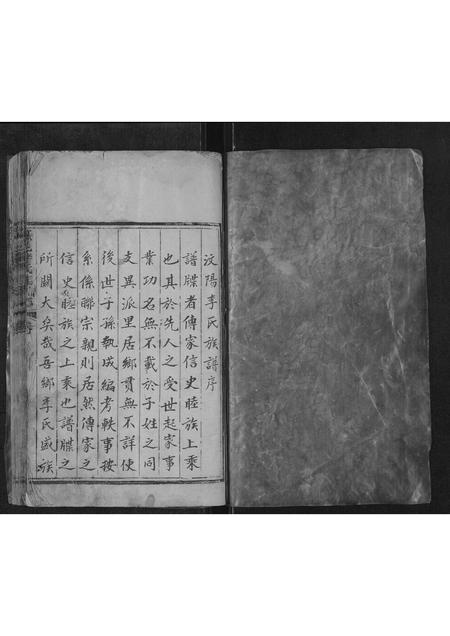 汶陽李氏族譜序
譜牒者傳家信史睦族上乘
也其於先人之受世起家事
業功名無不載於子姓之同
支異派里居鄉貫無不詳使
後世子孫執成編考軼事按
系係聯宗親則居然傳家之
信史睦族之上乘也譜牒之
所關大矣哉吾鄉李氏盛族